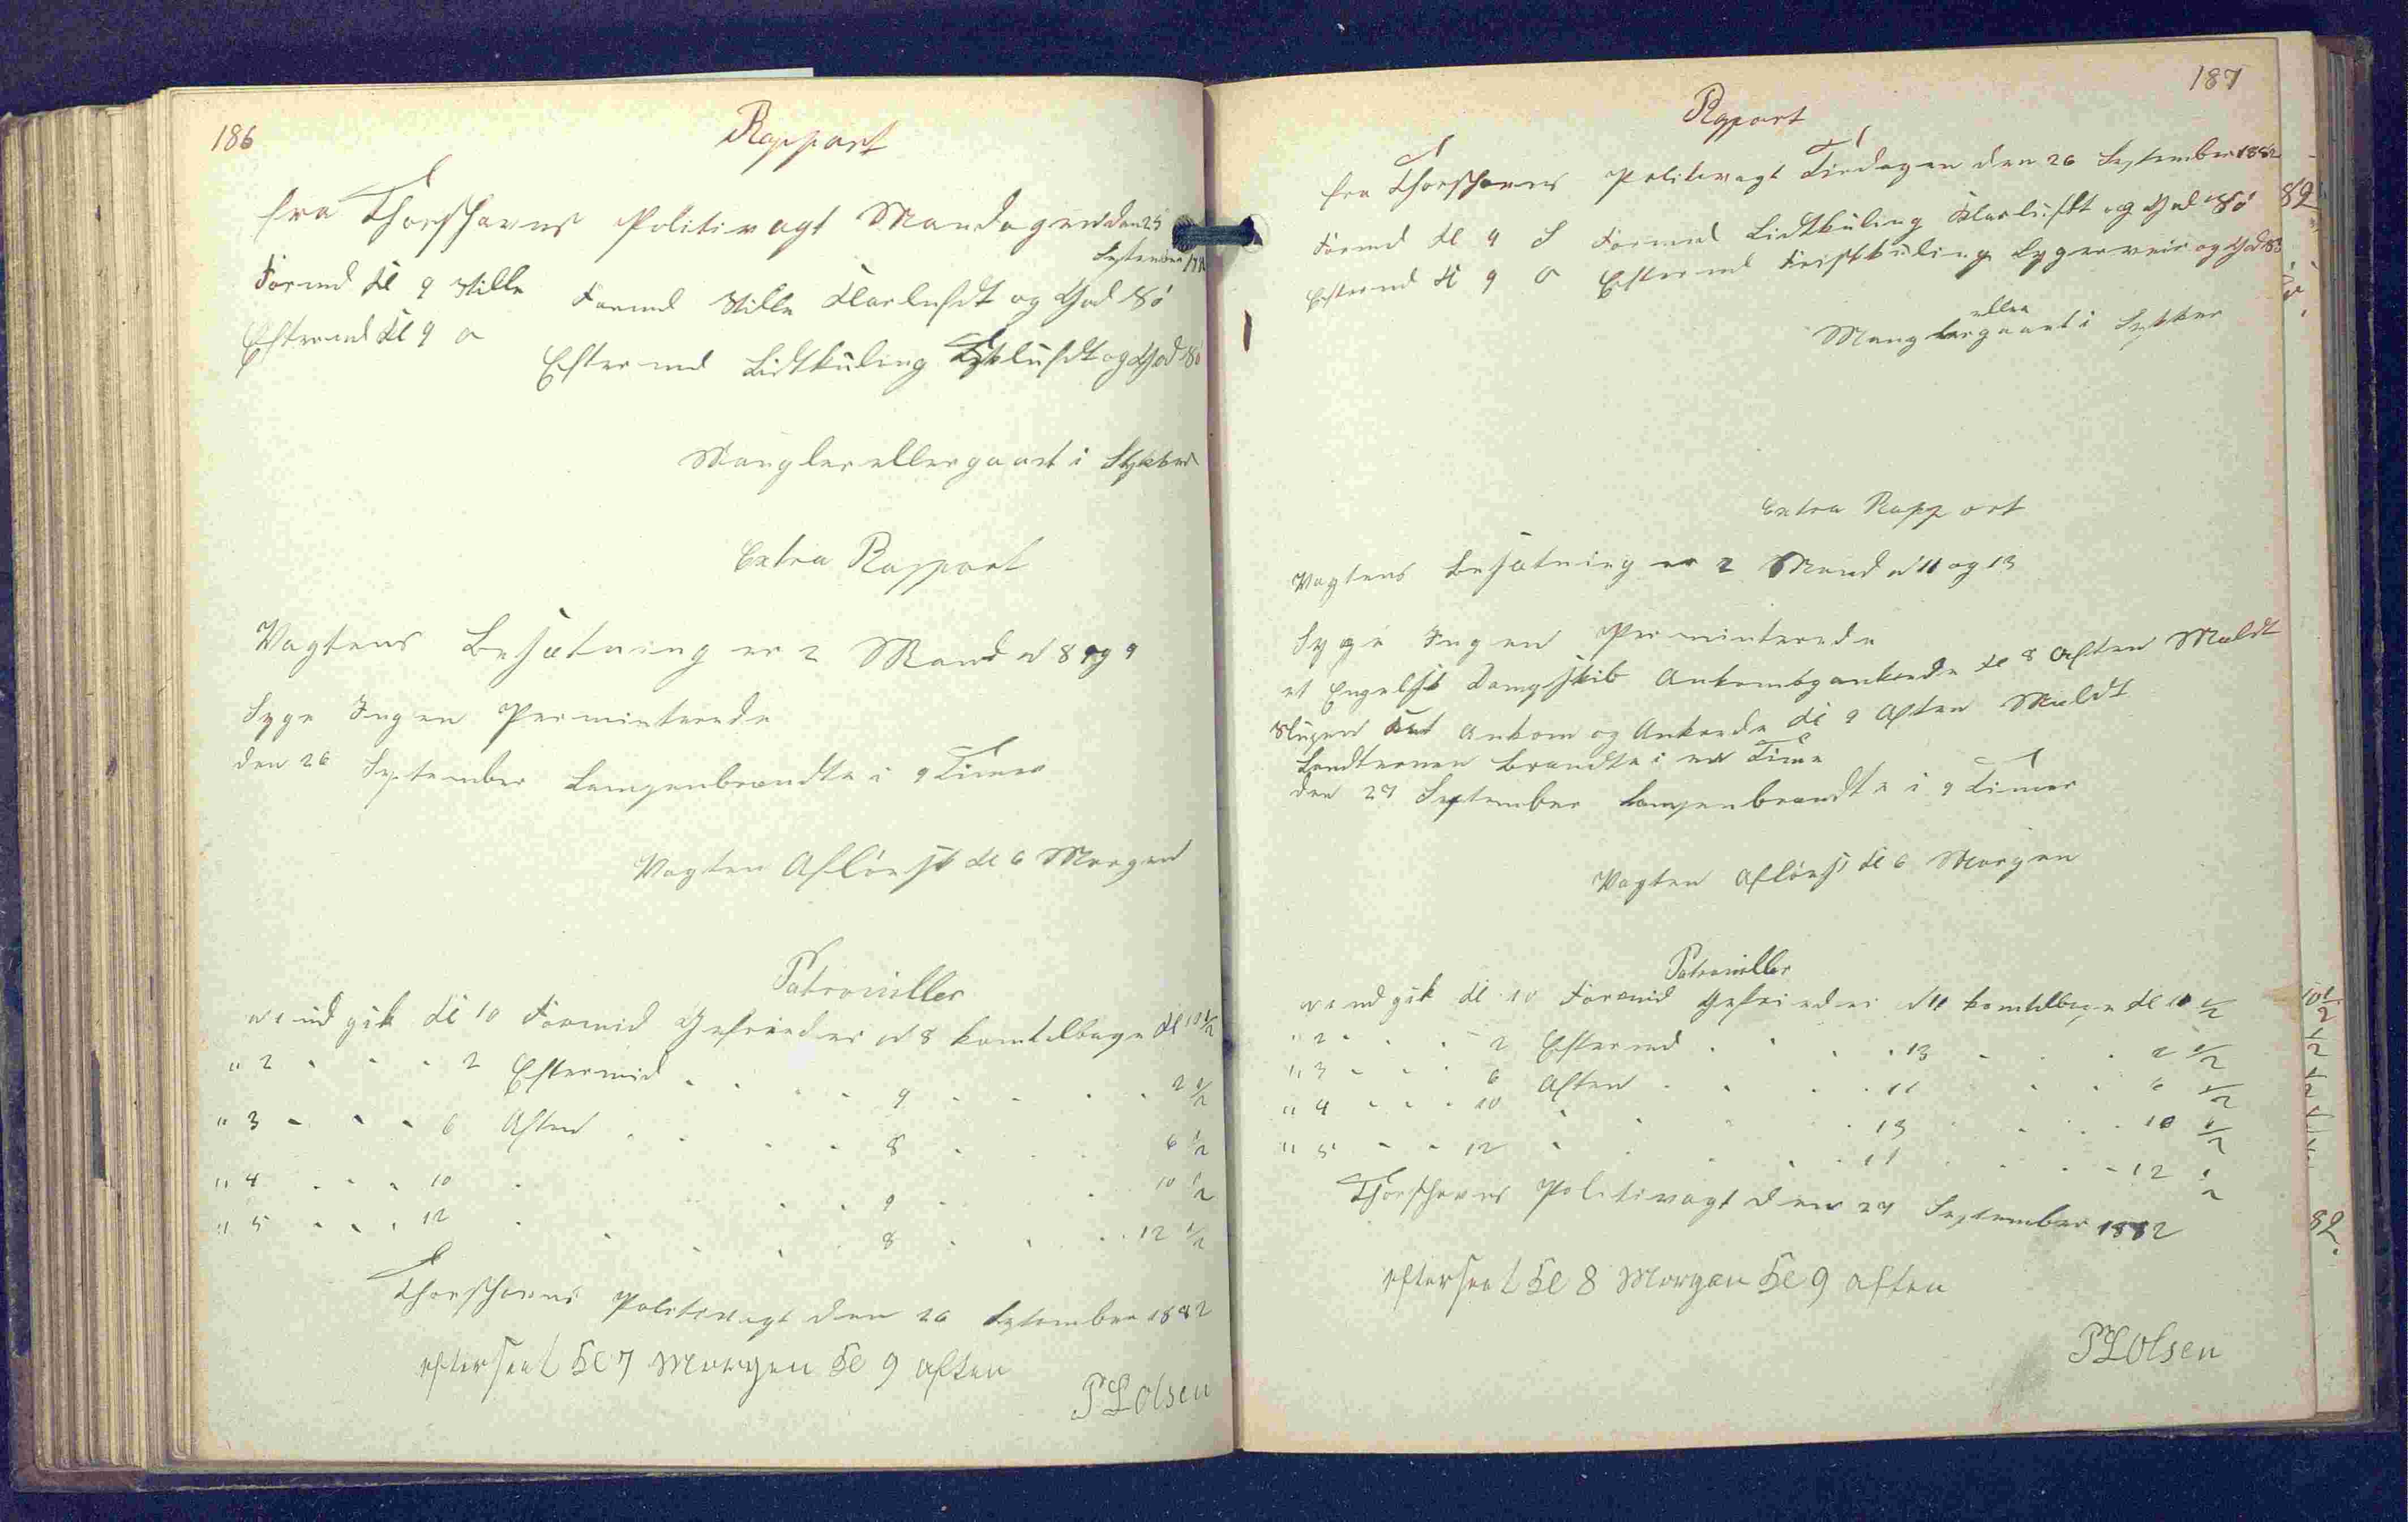 186
Rapport
fra Thorshavns Politivagt Mandagen den 25
September 1882
Formd Kl 9 Stille Formd Stille Klarluft og God Sö
Eftermd Kl 9 O
Eftermd Lidtkuling Tykluft og God Sö
Mangler eller gaaet i Stykker
Extra Rapport
Vagtens Besætning er 2 Mand N 8 og 9
Syge Ingen Perminterede
den 26 September Lampen brændte i 9 Timer
Vagten Aflöest Kl 6 Morgen
Patrouiller
N 1 ud gik Kl 10 Formid Gefreider N 8 kom tilbage Kl 10 1/2
" 2 " " " 2 Eftermid " " " " 9 " " " " 2 1/2
" 3 " " " 6 Aften " " " " 8 " " " 6 1/2
" 4 " " " 10 " " " " 9 " " 10 1/2
" 5 " " " 12 " " " " 8 " " " 12 1/2
Thorshavns Politivagt den 26 September 1882
efterseet Kl 7 Morgen Kl 9 aften
P L Olsen
187
Raport
fra Thorshavns Politivagt Tirdagen den 26 September 1882
Formd Kl 9 S Formd Lidtkuling Klarluft og God Sö
Eftermd Kl 9 O Eftermd Friskkuling Bygerveir og God Sö
eller
Mangler gaaet i Sykker
Extra Rapport
Vagtens Besætning er 2 Mand N 11 og 13
Syge Ingen Perminterede
et Engelsk Dampskib Ankom og ankrede Kl 8 Aften Mældt
Slupen Ankom og Ankrede Kl 9 Aften Mældt
Landternen brændte i en Time
den 27 September Lampen brændte i 9 Timer
Vagten aflöest Kl 6 Morgen
Patrouiller
N 1 ud gik Kl 10 Formid Gefreider N 11 kom tilbage Kl 10 1/2
" 2 " " " 2 Eftermd " " " " 13 " " " 2 1/2
" 3 " " " 6 Aften " " " " 11 " " " 6 1/2
" 4 " " " 10 " " " " 13 " " " 10 1/2
" 5 " " " 12 " " " " 11 " " " 12 1/2
Thorshavns Politivagt den 27 September 1882
efterseet Kl 8 Morgen Kl 9 aften
P L Olsen
82
10 1/2
1/2
1/2
82.